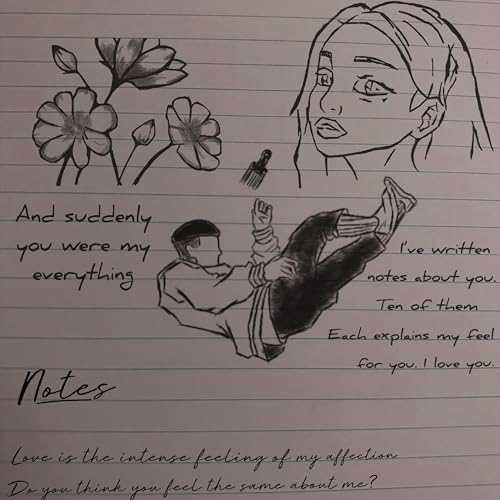 And suddenly
you were my
everything
I've written
notes about you.
Ten of them
Each explains my feel
for you. I love you.
Notes
Love is the intense feeling of my affection
Do you think you feel the same about me?